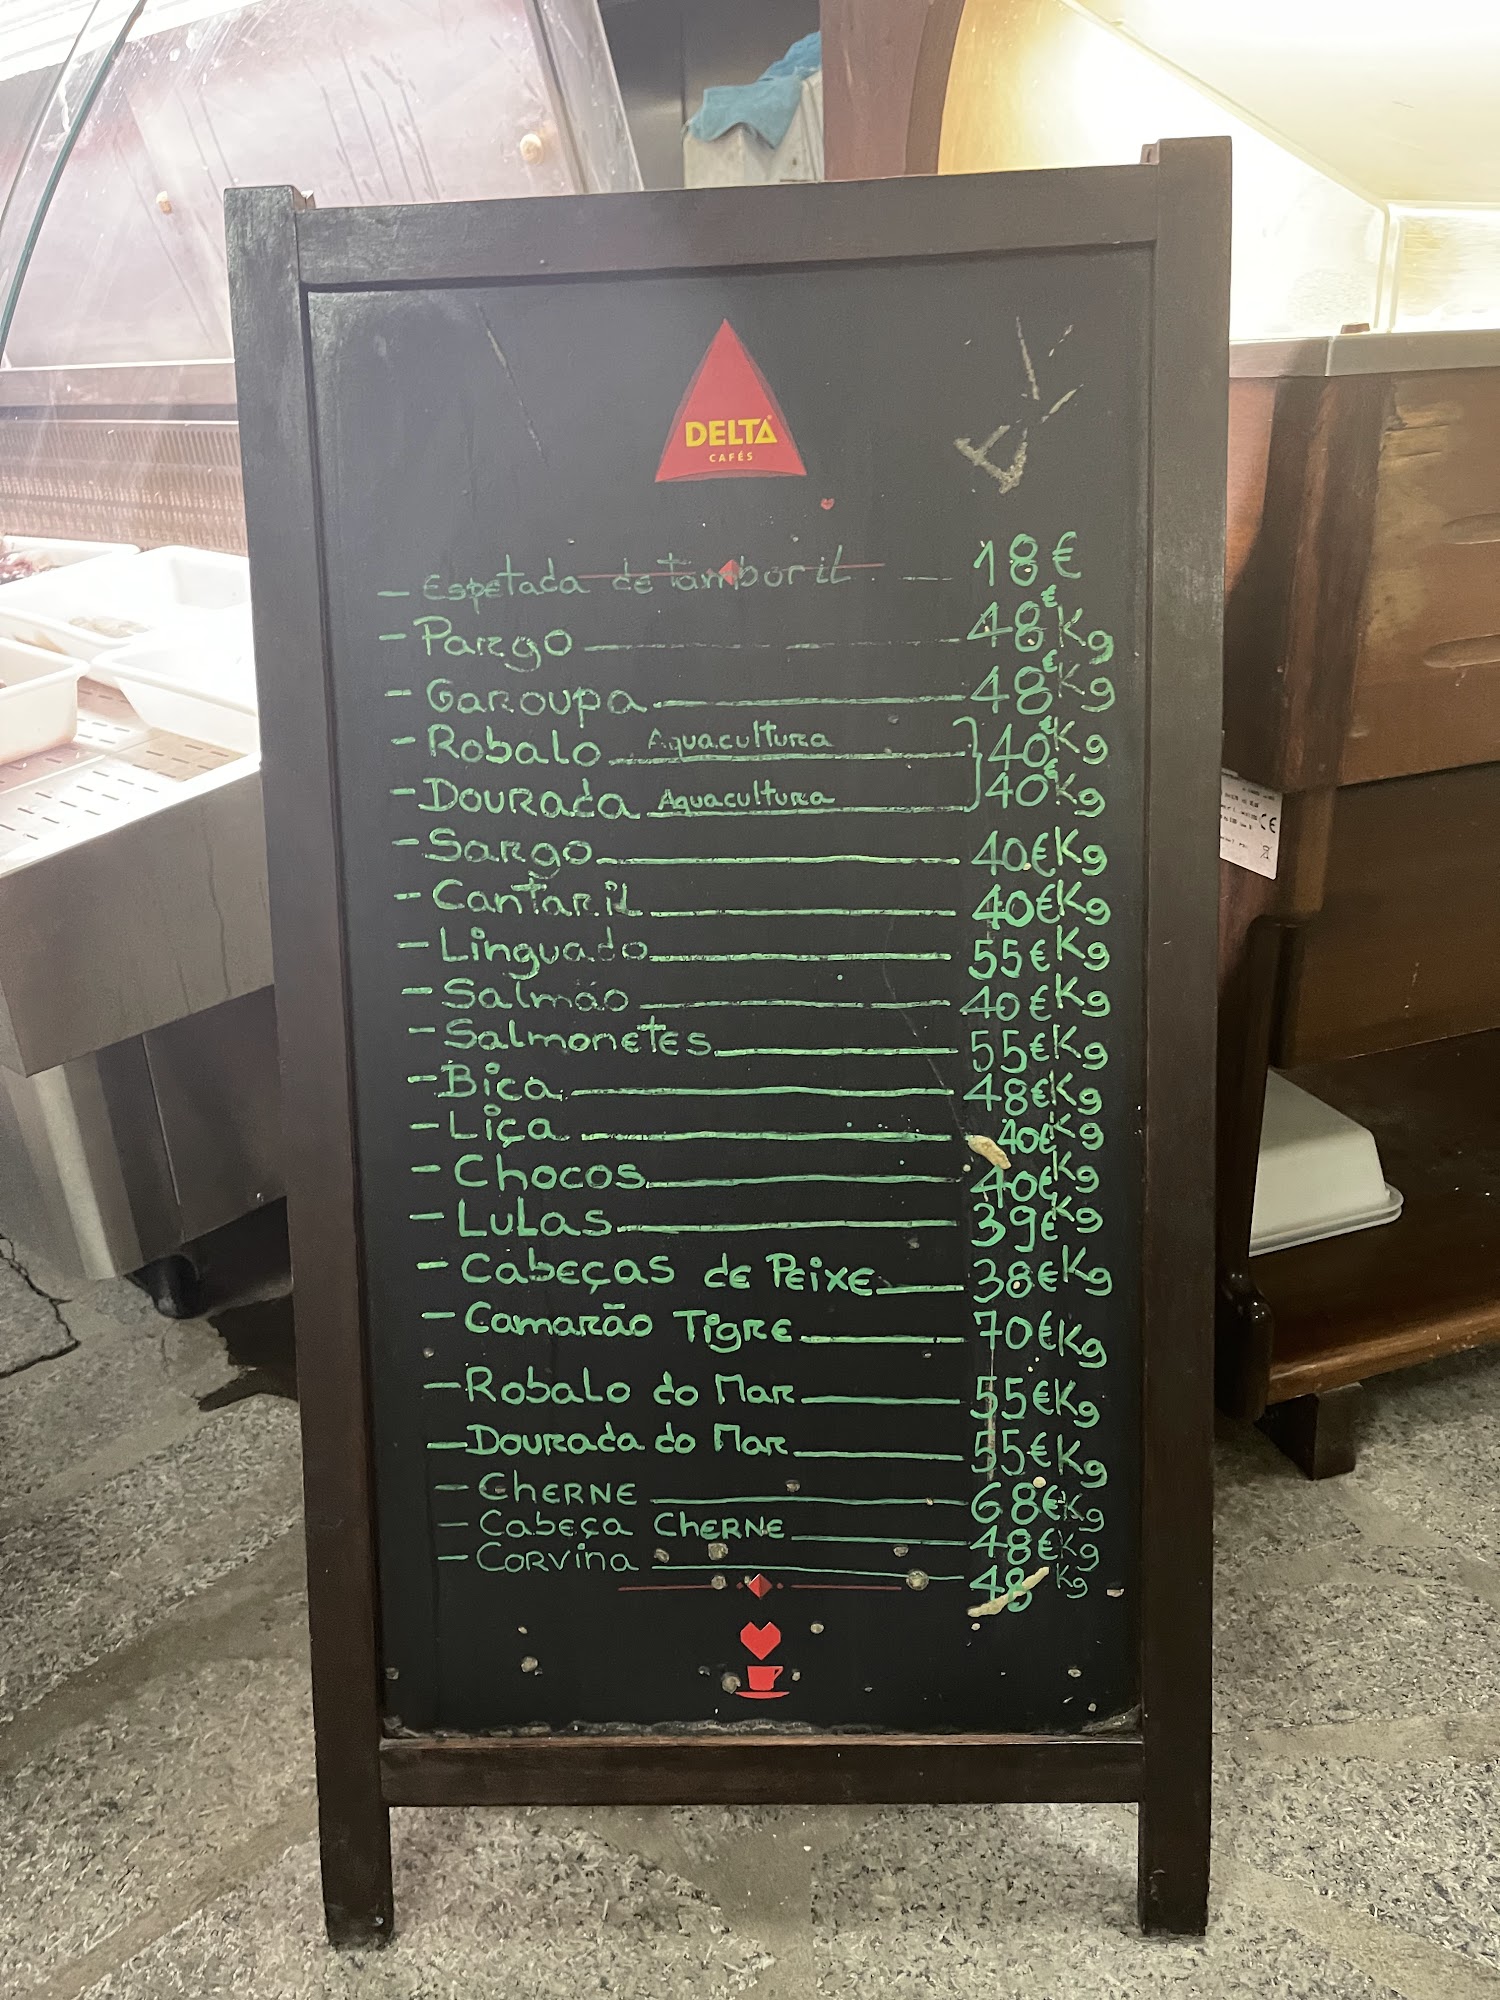 DELTA
CAFÉS
- Espetada de tamboril - 18€
- Pargo 48€ Kg
- Garoupa 48€ Kg
- Robalo Aquacultura 40€ Kg
- Dourada Aquacultura 40€ Kg
- Sargo 40€ Kg
- Cantaril 40€ Kg
- Linguado 55€ Kg
- Salmão 40€ Kg
- Salmonetes 55€ Kg
- Bica 48€ Kg
- Liça 40€ Kg
- Chocos 40€ Kg
- Lulas 39€ Kg
- Cabeças de Peixe 38€ Kg
- Camarão Tigre 70€ Kg
- Robalo do Mar 55€ Kg
- Dourada do Mar 55€ Kg
- Cherne 68€ Kg
- Cabeça Cherne 48€ Kg
- Corvina 48 Kg
CE